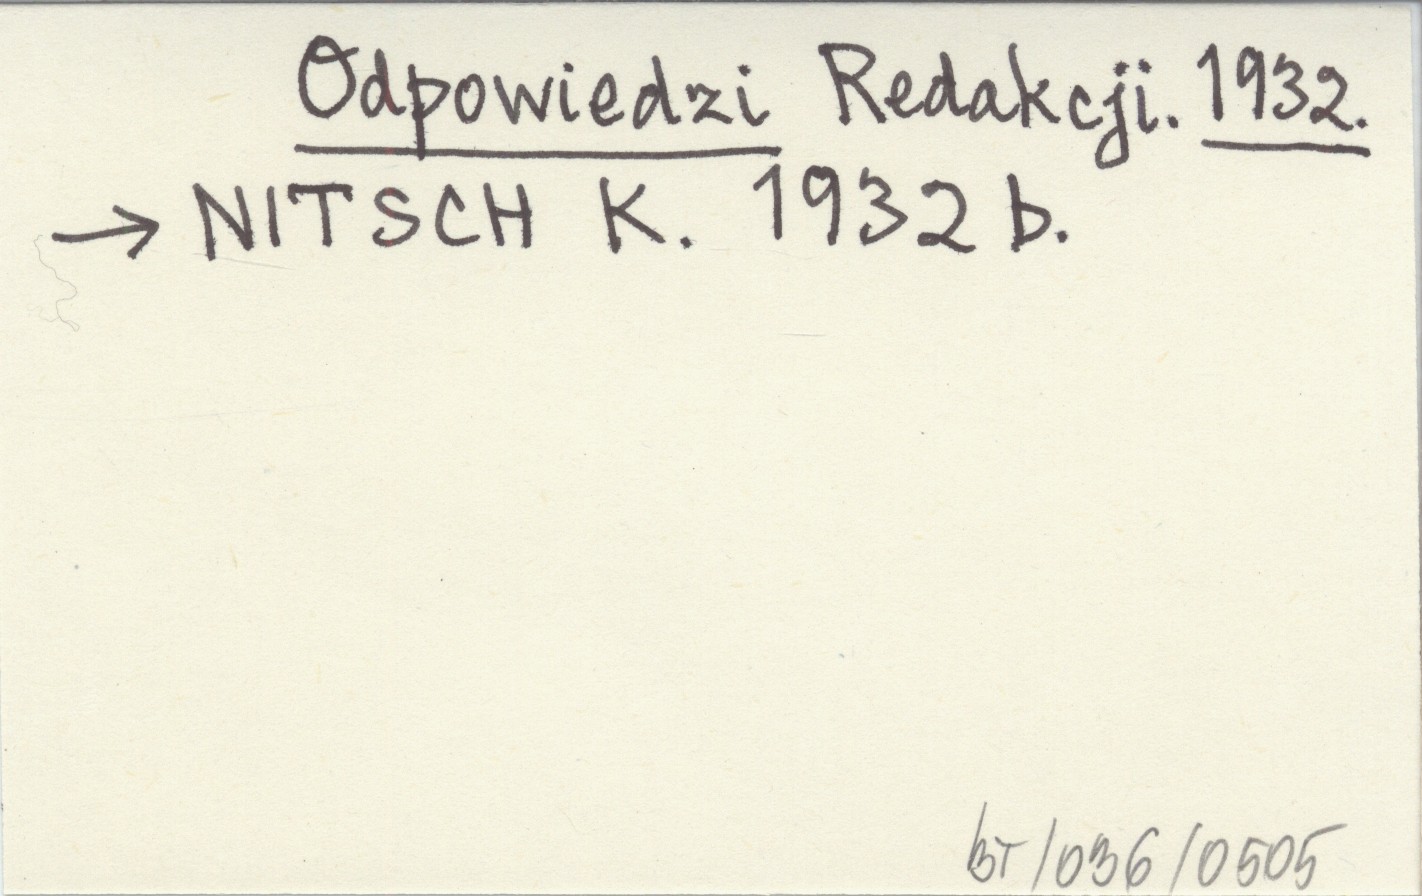 Odpowiedzi Redakcji. 1932.
→ NITSCH K. 1932 b.
BT/036/0505